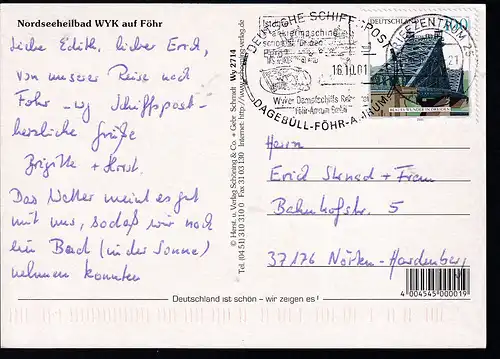 Nordseeheilbad WYK auf Föhr
Liebe Edith, lieber Erich,
von unserer Reise nach
Föhr - wg Schiffspost -
herzliche Grüße
Brigitte + Horst.
Das Wetter meint es gut
mit uns, sodaß wir noch
ein Bad (in der Sonne)
nehmen konnten
© Herst. u. Verlag Schöning & Co. + Gebr. Schmidt Wy 2714
Tel. (04 51) 310 310 0 Fax 31 03 130 Internet: http://www.
DEUTSCHE SCHIFFSPOST
16.10.01
Wyker Dampfschiffs Reederei
Föhr-Amrum GmbH
DAGEBÜLL-FÖHR-AMRUM
DEUTSCHLAND
100
BRIEFZENTRUM 25
21
BLAUES WUNDER IN DRESDEN
Herrn
Erich + Frau
Bahnhofstr. 5
37176 Nörten-Hardenberg
4 004545 000019
Deutschland ist schön - wir zeigen es!